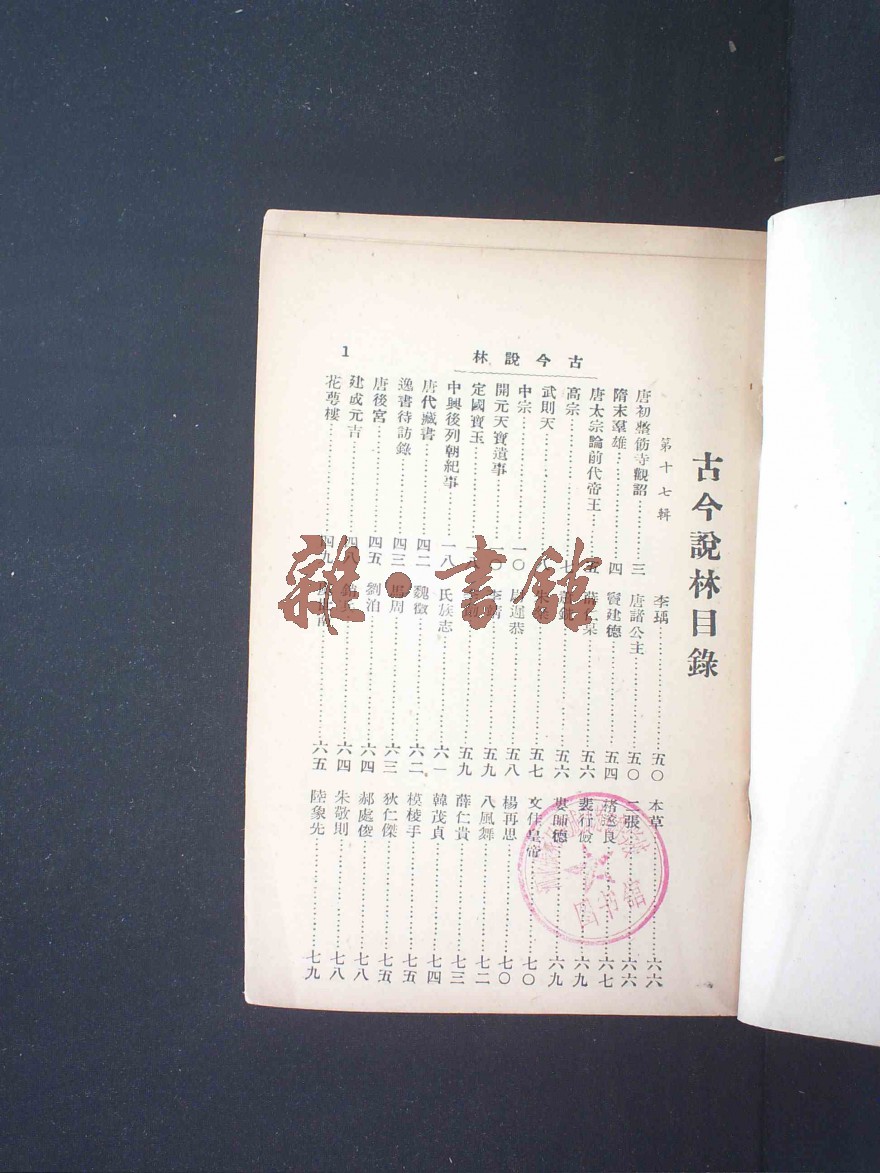 古今說林目錄
第十七輯
古今說林
1
唐初整飭寺觀詔……三
隋末羣雄……四
唐太宗論前代帝王……五
高宗……七
武則天……
中宗……一〇
開元天寶遺事……一〇
定國寶玉……
中興後列朝紀事……一八
唐代藏書……四二
逸書待訪錄……四三
唐後宮……四五
建成元吉……四八
花萼樓……四九
李瑀……五〇
唐諸公主……五〇
竇建德……五四
薛仁杲……五六
蕭銑……五六
……五七
尉遲恭……五八
李靖……五九
……五九
氏族志……六一
魏徵……六二
馬周……六三
劉泊……六四
……六四
……六五
本草……六六
二張……六六
褚遂良……六七
裴行儉……六九
婁師德……六九
文佳皇帝……七〇
楊再思……七〇
八風舞……七二
薛仁貴……七三
韓茂貞……七四
模棱手……七五
狄仁傑……七五
郝處俊……七八
朱敬則……七八
陸象先……七九
雜·書館
图书馆